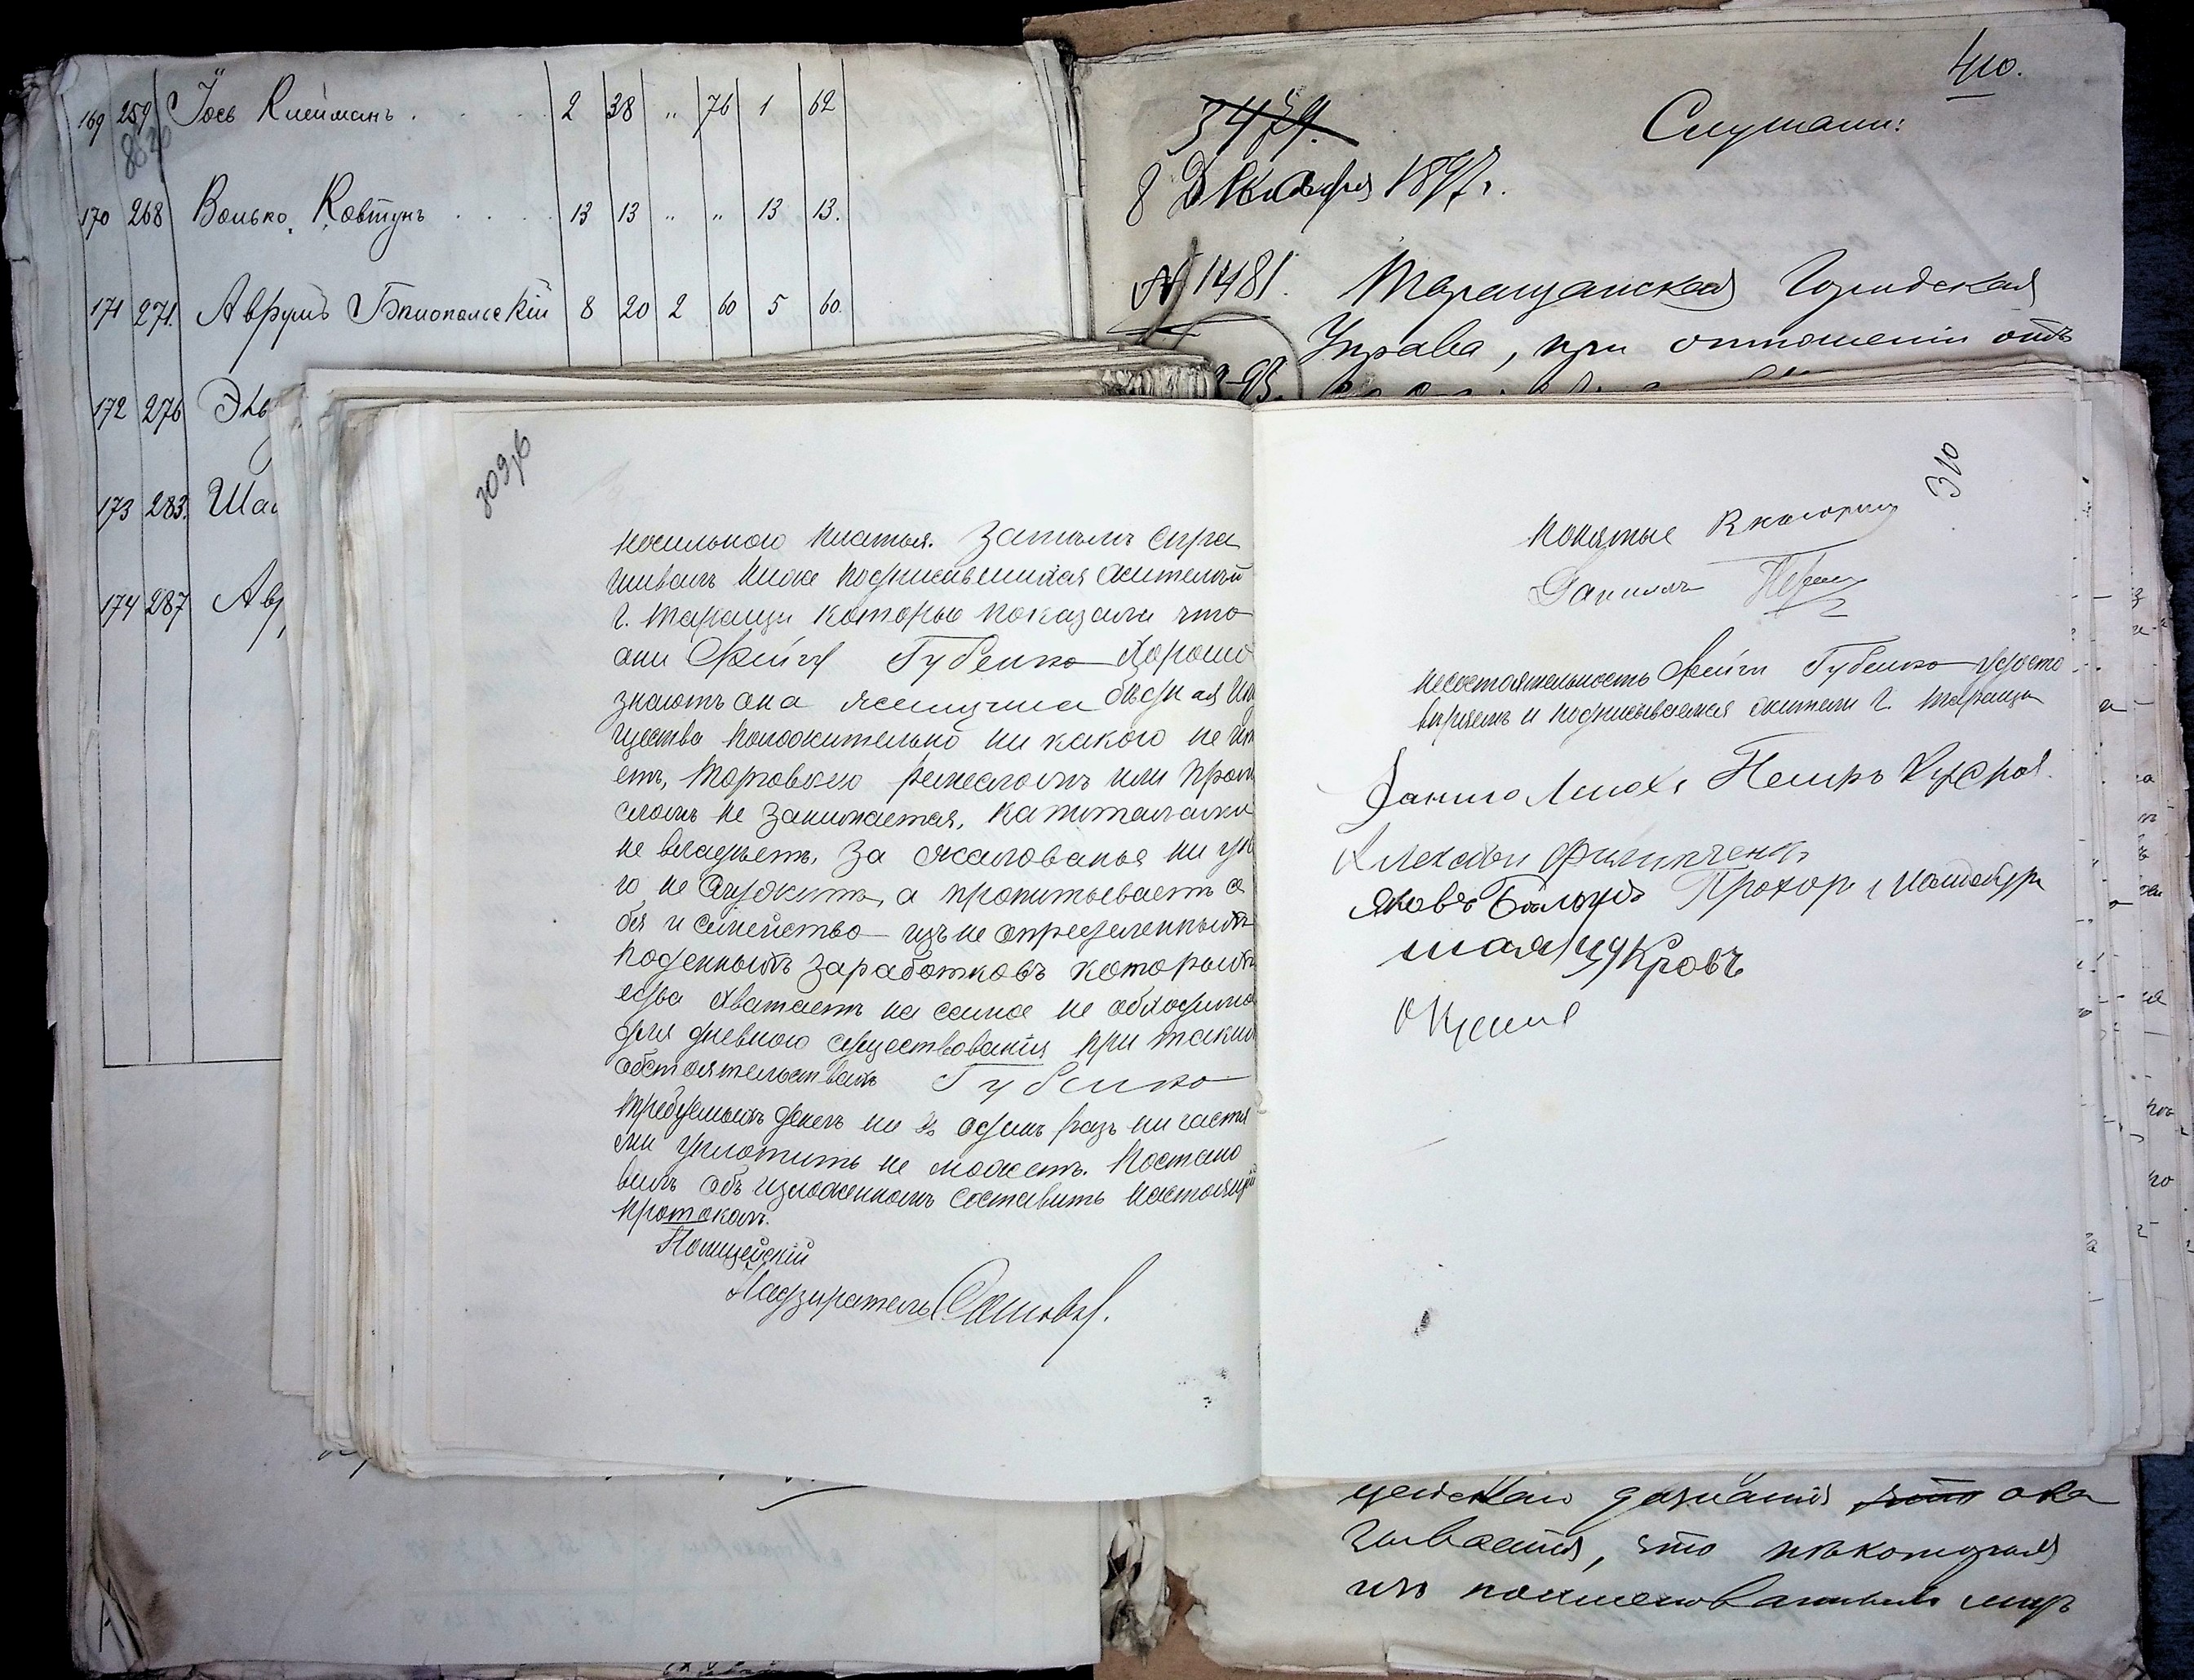 169 259 Іось Клейманъ . . . 2 38 " 76 1 62
170 268 Волько Ковтунъ . . . 13 13 " " 13 13.
171 271. Аврумъ Бѣлопольскій 8 20 2 60 5 60.
172 276
173 283.
174 287
410.
Слушали:
8 Декабря 1897 г.
№ 1481. Таращанская Городская
Управа, при отношеніи отъ
309 об
носильного платья. Затѣмъ спра
шивалъ ниже подписавшихся жителей
г. Таращи которые показали что
они Фейгу Губенко хорошо
знаютъ она женщина бѣдная иму
щества положительно ни какого не имѣ
етъ, торговлею ремесломъ или промы
сломъ не занимается, капиталами
не владѣетъ, за жалованье ни у ко
го не служитъ, а пропитываетъ се
бя и семейство изъ не определенныхъ
поденныхъ заработковъ которыхъ
едва хватаетъ на самое не обходимое
для дневного существованія при такихъ
обстоятельствахъ Губенко
требуемыхъ денегъ ни въ одинъ разъ ни частя
ми уплотить не можетъ. Постано
вилъ объ изложенномъ составить настоящій
протоколъ.
Полицейскій
Надзиратель
310
Понятые
Данило
несостоятельность Фейги Губенко удосто
вѣряемъ и подписываемся жители г. Таращи
Данило Ляхъ Петръ
Алексѣй Филипченко
Яковъ Прохоръ
цейскаго дознанія что ока
зывается, что нѣкоторыя
изъ поименованныхъ лицъ